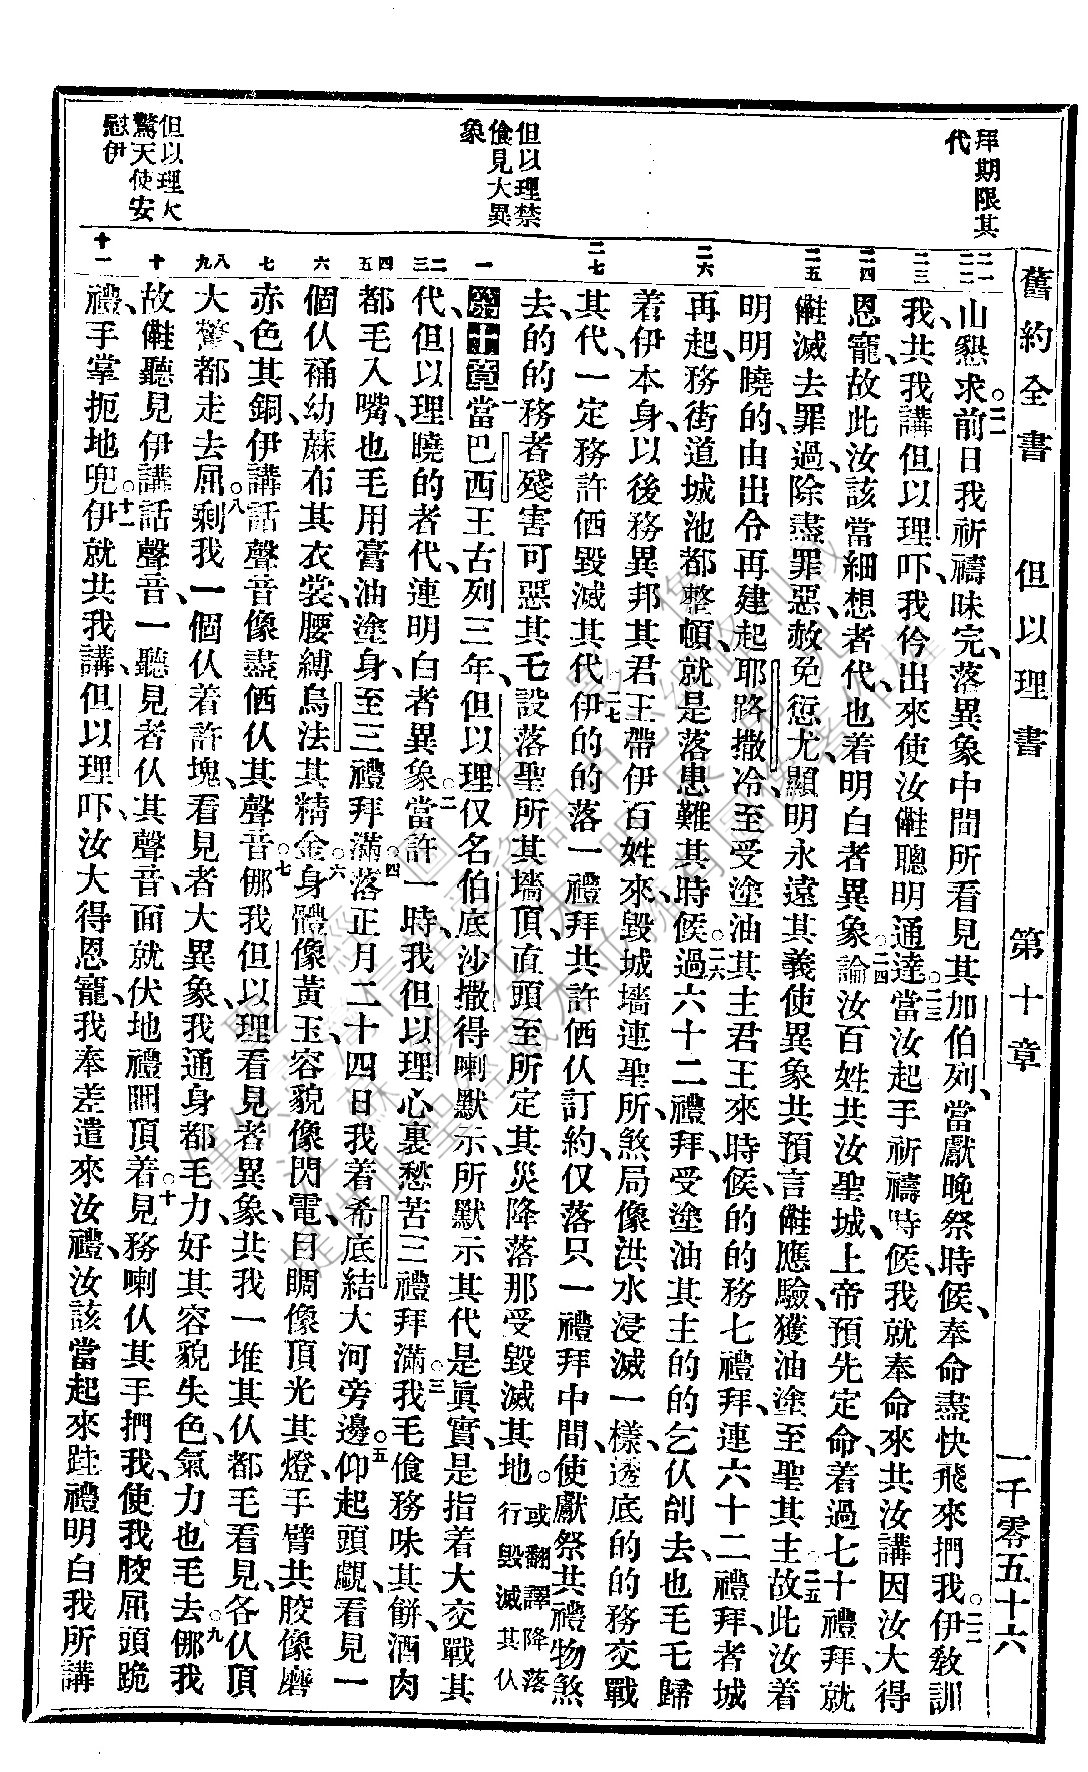 舊約全書 但以理書 第十章 一千零五十六
拜期限其
代
但以理禁
飡見大異
象
但以理大
驚天使安
慰伊
二一
二二
二三
二四
二五
二六
二七
一
二
三
四
五
六
七
八
九
十
十一
山懇求前○二一日我祈禱昧完、落異象中間所看見其加伯列、當獻晚祭時候、奉命盡快飛來捫我○二二伊敎訓
我、共我講但以理吓、我仱出來使汝㒰聰明通達○二三當汝起手祈禱時候、我就奉命來共汝講、因汝大得
恩寵、故此汝該當細想者代、也着明白者異象○二四論汝百姓共汝聖城、上帝預先定命、着過七十禮拜、就
㒰滅去罪過、除盡罪惡、赦免愆尤、顯明永遠其義、使異象共預言㒰應驗、獲油塗至聖其主○二五故此汝着
明明曉的、由出令再建起耶路撒冷、至受塗油其主君王來時候、的的務七禮拜、連六十二禮拜、者城
再起、務街道城池都整頓、就是落患難其時候○二六過六十二禮拜、受塗油其主的的乞仈刣去、也毛乇歸
着伊本身、以後務異邦其君王帶伊百姓來、毀城墻連聖所、煞局像洪水浸滅一樣、透底的的務交戰
其代、一定務許㑚毀滅其代○二七伊的的落一禮拜共許㑚仈訂約、仅落只一禮拜中間、使獻祭共禮物煞
去、的的務者殘害可惡其乇、設落聖所其墻頂、直頭至所定其災降落那受毀滅其地○或翻譯降落行毀滅其仈
第十章一當巴西王古列三年、但以理仅名伯底沙撒得喇默示、所默示其代是眞實、是指着大交戰其
代、但以理曉的者代、連明白者異象○二當許一時、我但以理心裏愁苦三禮拜滿○三我毛飡務味其餅、酒肉
都毛入嘴、也毛用膏油塗身、至三禮拜滿○四落正月二十四日、我着希底結大河旁邊○五仰起頭覷、看見一
個仈、䘼幼蔴布其衣裳、腰縛烏法其精金○六身體像黃玉、容貌像閃電、目睭像頂光其燈、手臂共骹像磨
赤色其銅、伊講話聲音像盡㑚仈其聲音○七㑚我但以理看見者異象、共我一堆其仈、都毛看見、各仈頂
大驚、都走去屈○八剩我一個仈着許塊、看見者大異象、我通身都毛力、好其容貌失色、氣力也毛去○九㑚我
故㒰聽見伊講話聲音、一聽見者仈其聲音、面就伏地禮、𥋌頂着○十見務喇仈其手捫我、使我骹屈頭跪
禮、手掌扼地兜○十一伊就共我講、但以理吓、汝大得恩寵、我奉差遣來汝禮、汝該當起來跬禮、明白我所講